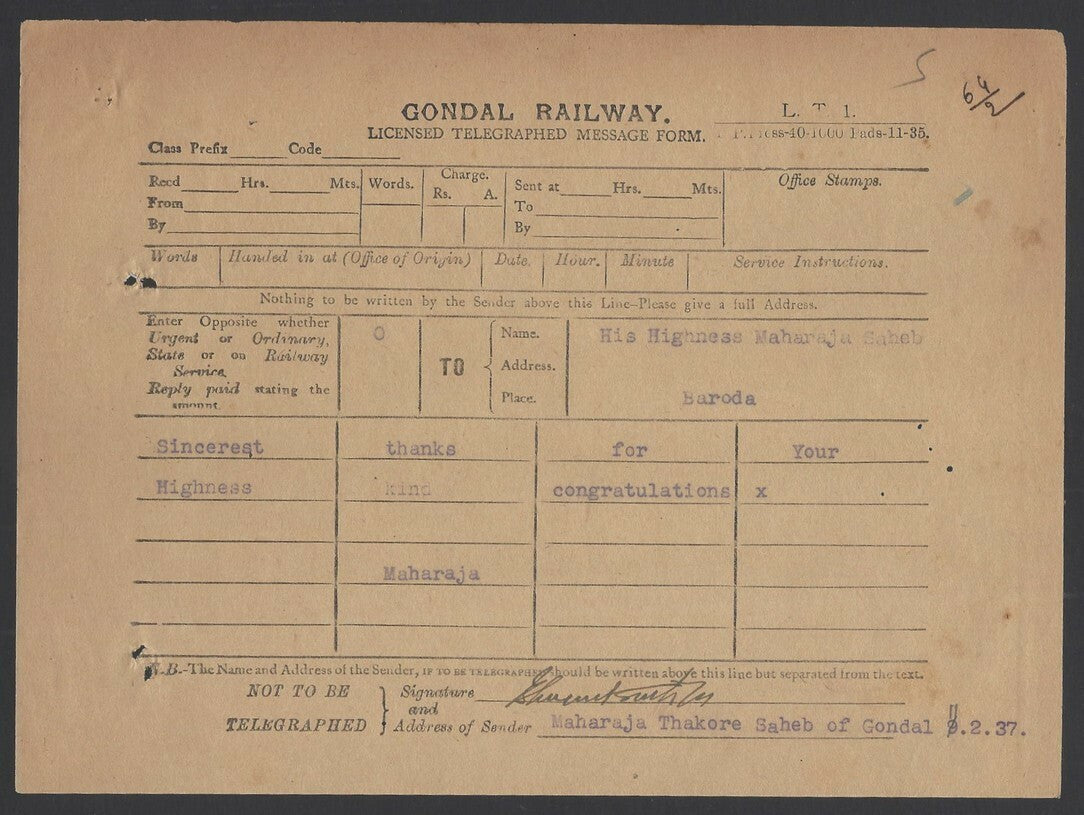 5
64/2
GONDAL RAILWAY.
L. T 1.
LICENSED TELEGRAPHED MESSAGE FORM.
-40-1000 Pads-11-35.
Class Prefix Code
Recd Hrs. Mts. Words. Charge. Sent at Hrs. Mts. Office Stamps.
Rs. A.
From To
By By
Words Handed in at (Office of Origin) Date. Hour. Minute Service Instructions.
Nothing to be written by the Sender above this Line-Please give a full Address.
Enter Opposite whether
Urgent or Ordinary,
State or on Railway
Service.
Reply paid stating the
amount.
O
TO
Name. His Highness Maharaja Saheb
Address.
Place. Baroda
Sincerest thanks for Your
Highness kind congratulations x
Maharaja
N.B.-The Name and Address of the Sender, IF TO BE TELEGRAPHED should be written above this line but separated from the text.
NOT TO BE
TELEGRAPHED
Signature
and
Address of Sender Maharaja Thakore Saheb of Gondal .2.37.